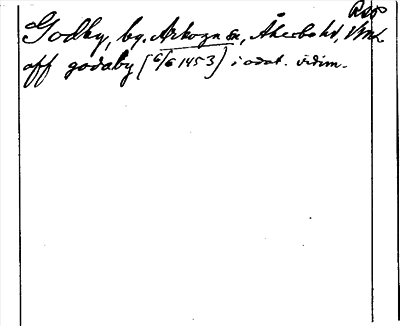 RAP
Godby, by. Arkogn sn, Åkerbohd, Vml.
off godaby [6/6 1453] i odat. vidim.